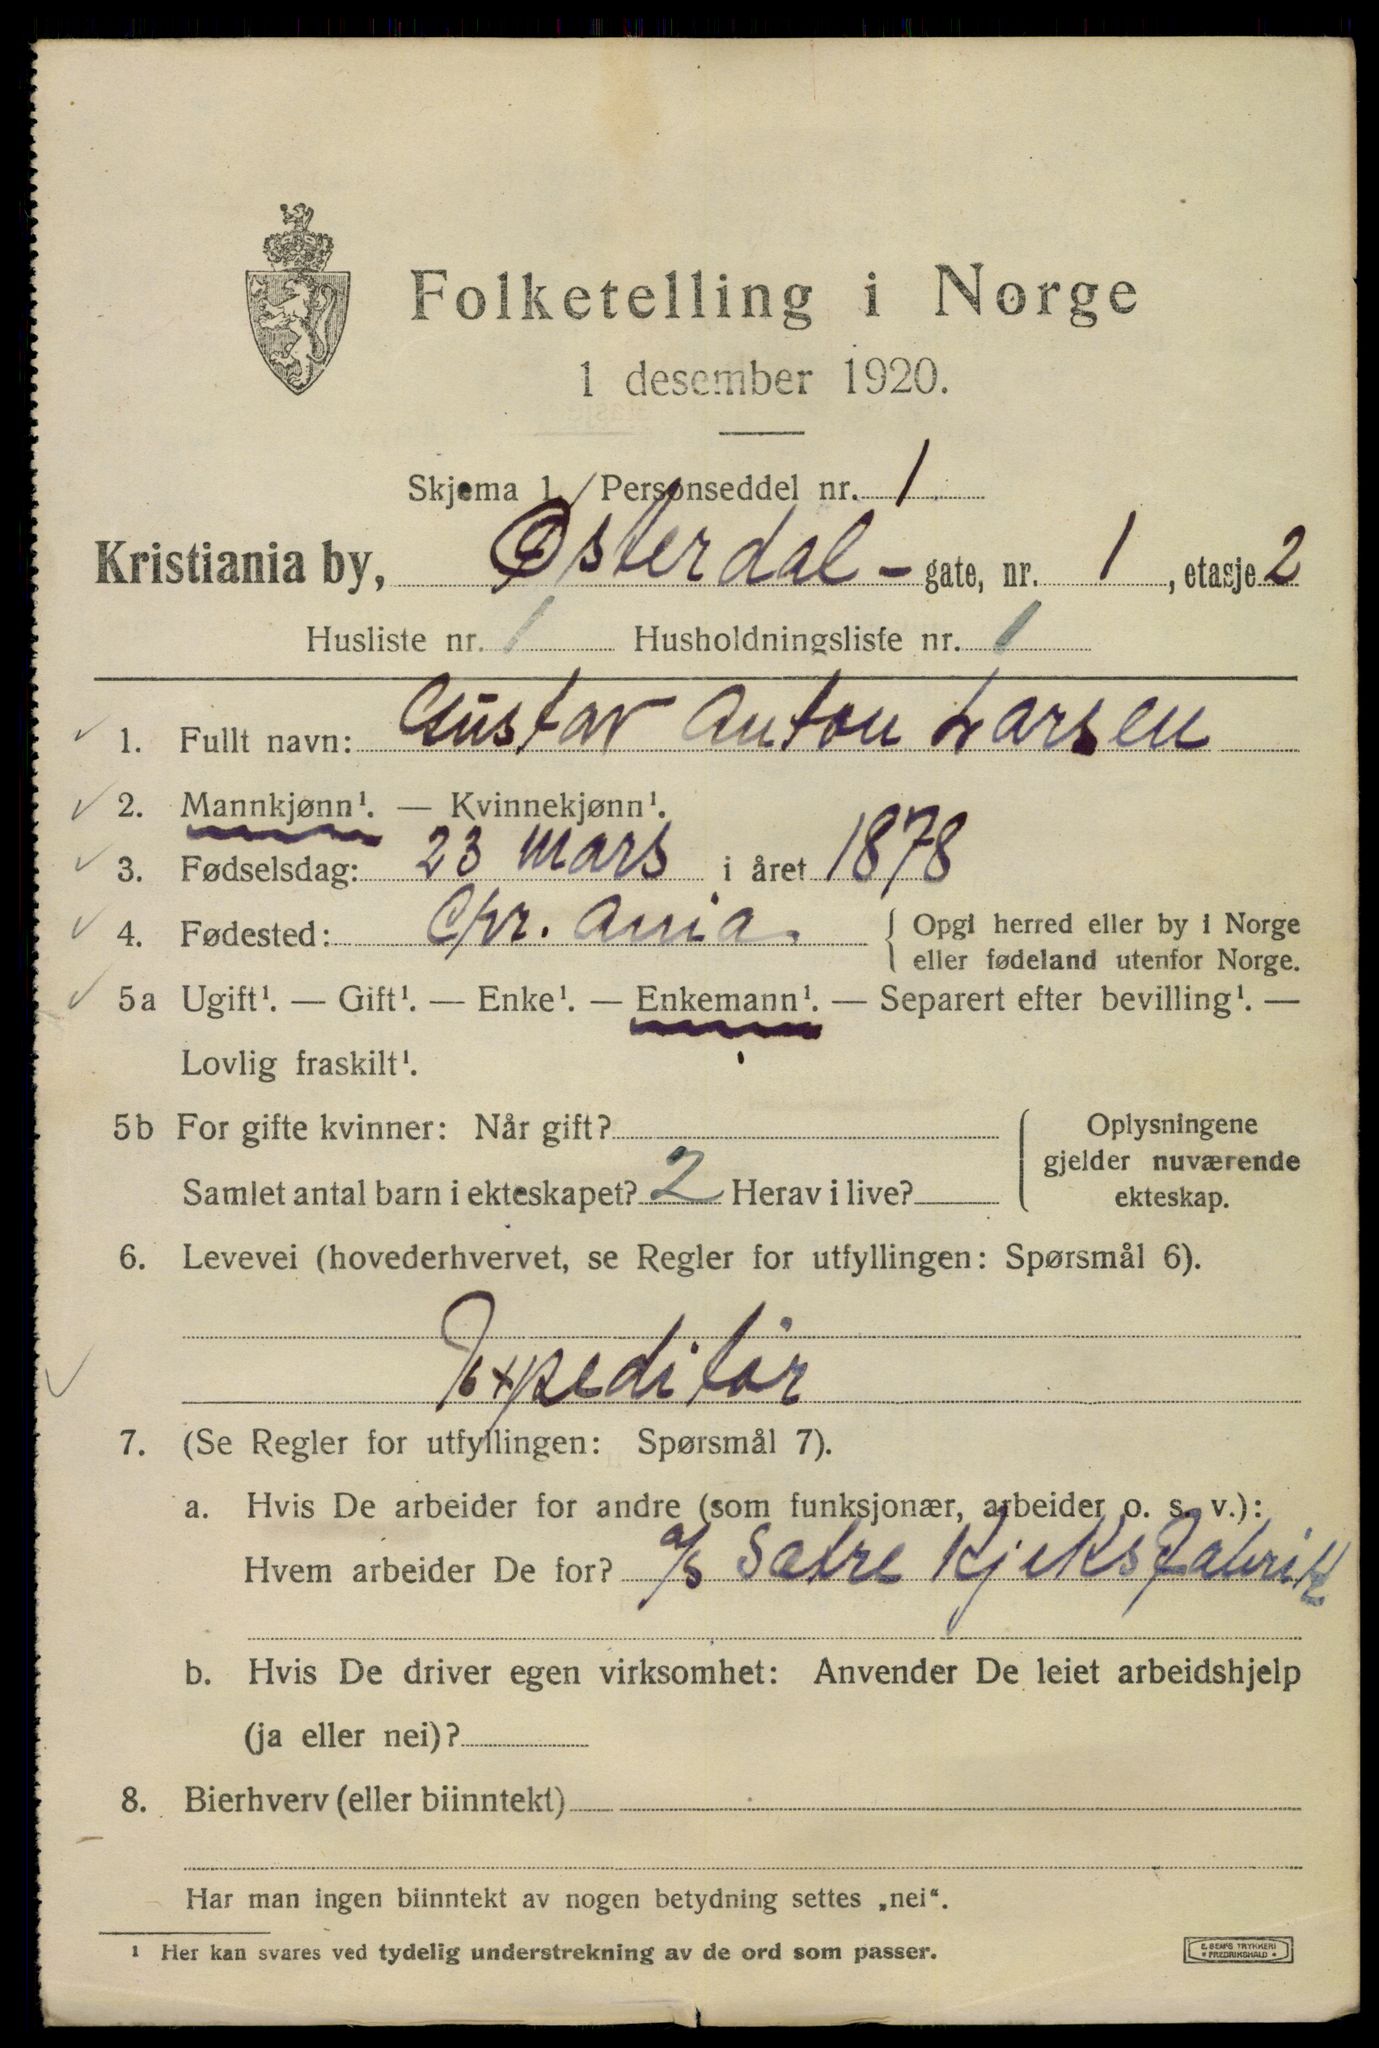 Folketelling i Norge
1 desember 1920.
Skjema 1. Personseddel nr. 1
Kristiania by, Østerdal - gate, nr. 1, etasje 2
Husliste nr. 1 Husholdningsliste nr. 1
1. Fullt navn: Gustav Anton Larsen
2. Mannkjønn¹. — Kvinnekjønn¹.
3. Fødselsdag: 23 mars i året 1878
4. Fødested: Chr. ania. { Opgi herred eller by i Norge
eller fødeland utenfor Norge.
5a Ugift¹. — Gift¹. — Enke¹. — Enkemann¹. — Separert efter bevilling¹. —
Lovlig fraskilt¹.
5b For gifte kvinner: Når gift?
Samlet antal barn i ekteskapet? 2 Herav i live?
Oplysningene
gjelder nuværende
ekteskap.
6. Levevei (hovederhvervet, se Regler for utfyllingen: Spørsmål 6).
Expeditør
7. (Se Regler for utfyllingen: Spørsmål 7).
a. Hvis De arbeider for andre (som funksjonær, arbeider o. s. v.):
Hvem arbeider De for? a/s Sætre Kjeksfabrik
b. Hvis De driver egen virksomhet: Anvender De leiet arbeidshjelp
(ja eller nei)?
8. Bierhverv (eller biinntekt)
Har man ingen biinntekt av nogen betydning settes „nei“.
¹ Her kan svares ved tydelig understrekning av de ord som passer.
E. SEMS TRYKKERI
* FREDRIKSHALD *